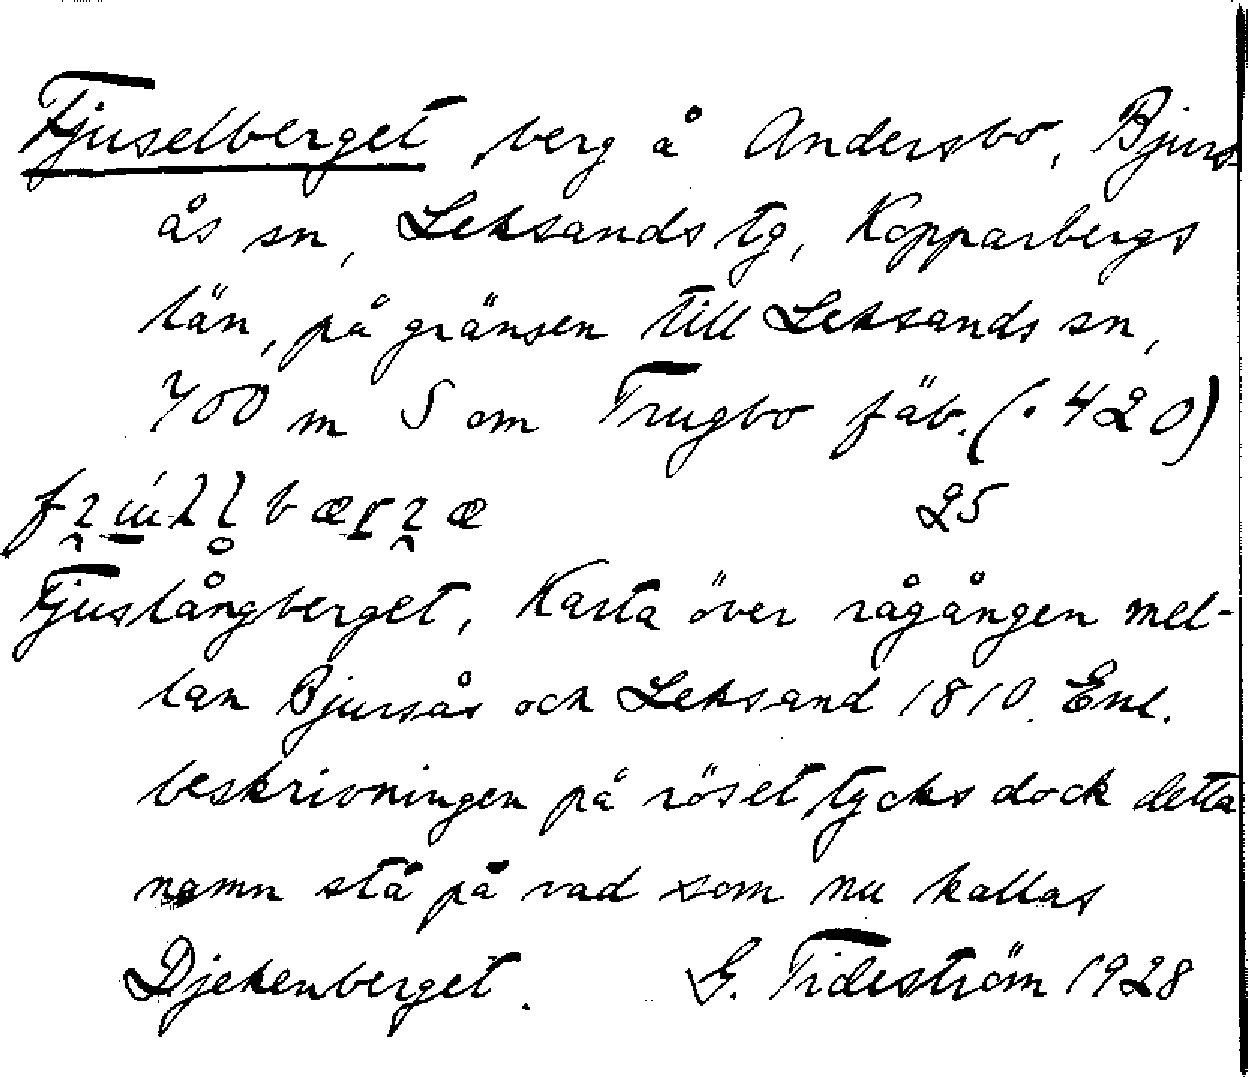 Fjuselberget, berg å Andersbo, Bjurs
ås sn, Leksands tg, Kopparbergs
län, på gränsen till Leksands sn,
700 m S om Trugbo fäb. (. 420)
25
Fjuslångberget, Karta över rågången mel-
lan Bjursås och Leksand 1810. Enl.
beskrivningen på röset, tycks dock detta
namn stå på vad som nu kallas
Djekenberget. G. Tideström 1928